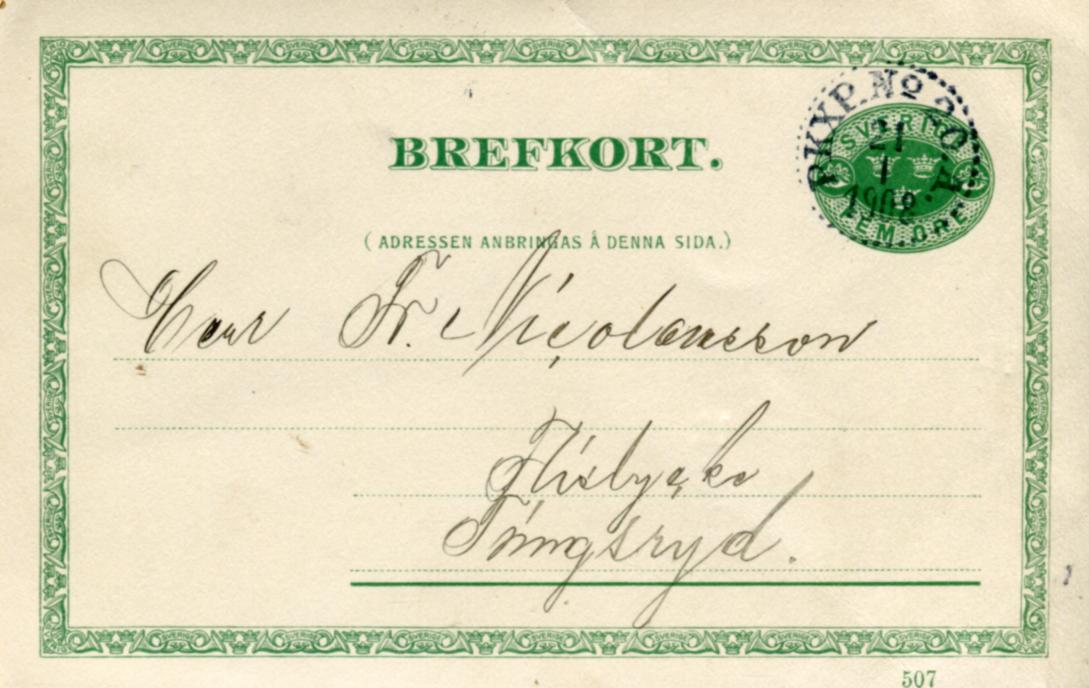 BREFKORT.
PKXP. No 20. A
21
1
1908
SVERIGE
FEM ÖRE
(ADRESSEN ANBRINGAS Å DENNA SIDA.)
Herr Fr. Nicolausson
Flisbycke
Tingsryd.
507